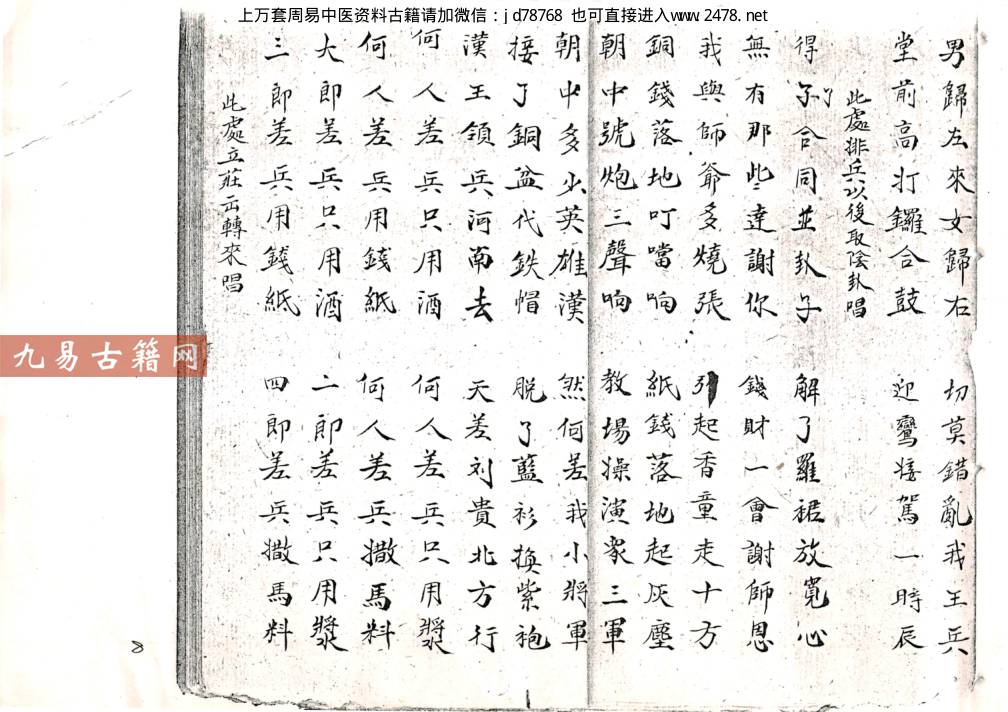 上万套周易中医资料古籍请加微信：jd78768 也可直接进入www.2478.net
男歸左來女歸右 切莫錯亂我王兵
堂前高打鑼合鼓 迎鸞接駕一時辰
此處排兵以後取陰卦唱
得了子合同並卦子 解了羅裙放寬心
無有那些達謝你 錢財一會謝師恩
我與師爺多燒張 引起香童走十方
銅錢落地叮噹响 紙錢落地起灰塵
朝中號炮三聲响 教場操演衆三軍
朝中多少英雄漢 然何差我小將軍
接了銅盆代鉄帽 脱了藍衫換紫袍
漢王領兵河南去 天差刘貴北方行
何人差兵只用酒 何人差兵只用漿
何人差兵用錢紙 何人差兵撒馬料
大郎差兵只用酒 二郎差兵只用漿
三郎差兵用錢紙 四郎差兵撒馬料
此處立莊正轉來唱
九易古籍网